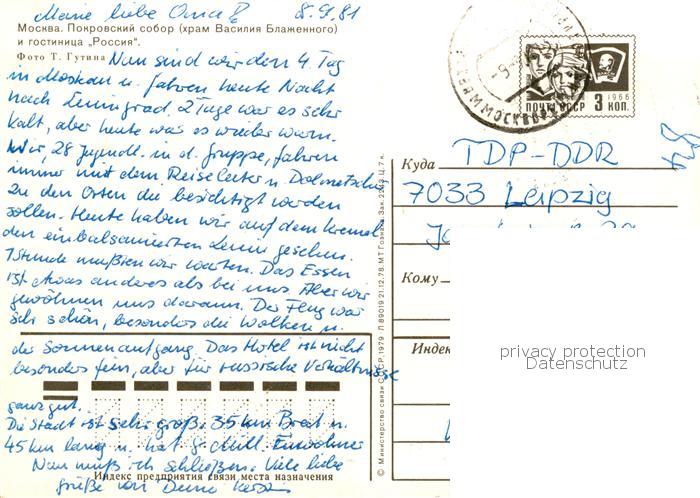 Meine liebe Oma! 8.9.81
Москва. Покровский собор (храм Василия Блаженного)
и гостиница „Россия".
Фото Т. Гутина
Nun sind wir den 4. Tag
in Moskau u. fahren heute Nacht
nach Leningrad 2 Tage war es sehr
kalt, aber heute war es wieder warm.
Wir, 28 Jugendl. in d. Gruppe, fahren
immer mit dem Reiseleiter u. Dolmetscher
zu den Orten die besichtigt werden
sollen. Heute haben wir auf dem Kreml
den einbalsamierten Lenin gesehen.
1 Stunde mußten wir warten. Das Essen
ist etwas anderes als bei uns Aber wir
gewöhnen uns daran. Der Flug war
sehr schön, besonders die Wolken u.
der Sonnenaufgang. Das Hotel ist nicht
besonders fein, aber für russische Verhältnisse
ganz gut.
Die Stadt ist sehr groß. 35 km Breit u.
45 km lang u. hat 8 Mill. Einwohner
Nun muß ich schließen. Viele liebe
Grüße von Deine
Индекс предприятия связи места назначения
© Министерство связи СССР, 1979 Л 89019 21.12.78. МТ Гознака. Зак. 2243 Ц. 7 к.
МОСКВА
1966
ПОЧТА СССР 3 КОП.
Куда TDP-DDR
7033 Leipzig
Кому
Индекс
privacy protection
Datenschutz